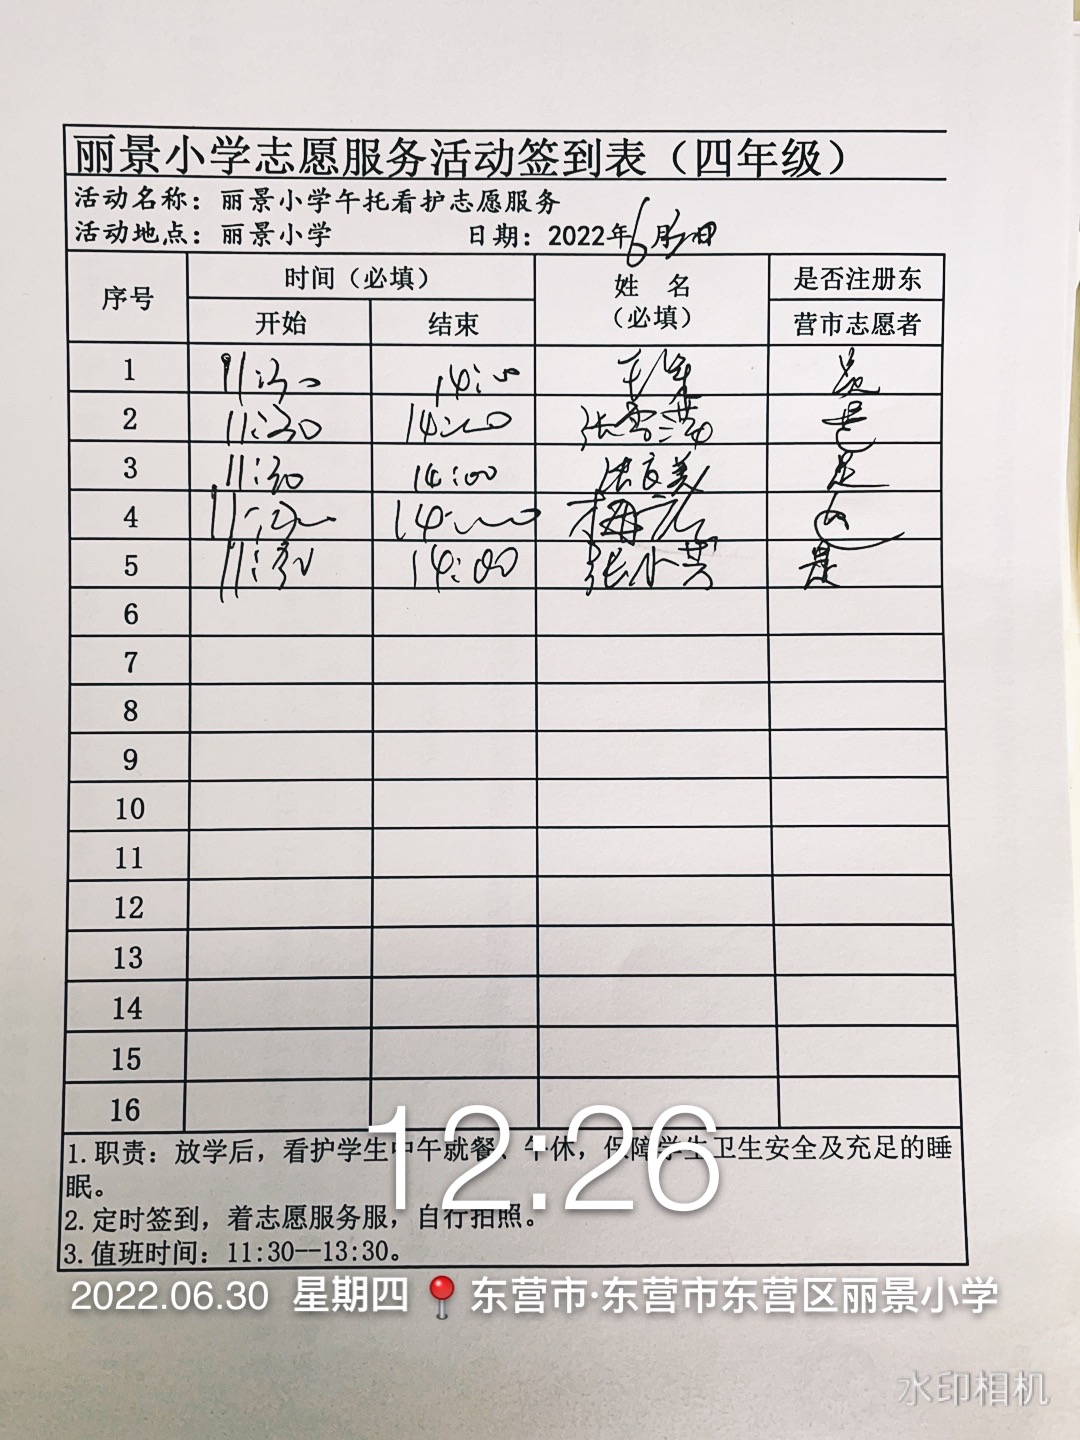 丽景小学志愿服务活动签到表（四年级）
活动名称：丽景小学午托看护志愿服务
活动地点：丽景小学 日期：2022年6月30日
序号 时间（必填） 姓 名（必填） 是否注册东营市志愿者
开始 结束
1 11:30 14:00 是
2 11:30 14:00 是
3 11:30 14:00 是
4 11:30 14:00
5 11:30 14:00 张小英 是
6
7
8
9
10
11
12
13
14
15
16
1.职责：放学后，看护学生中午就餐、午休，保障学生卫生安全及充足的睡
眠。
2.定时签到，着志愿服务服，自行拍照。
3.值班时间：11:30--13:30。
12:26
2022.06.30 星期四 东营市·东营市东营区丽景小学
水印相机